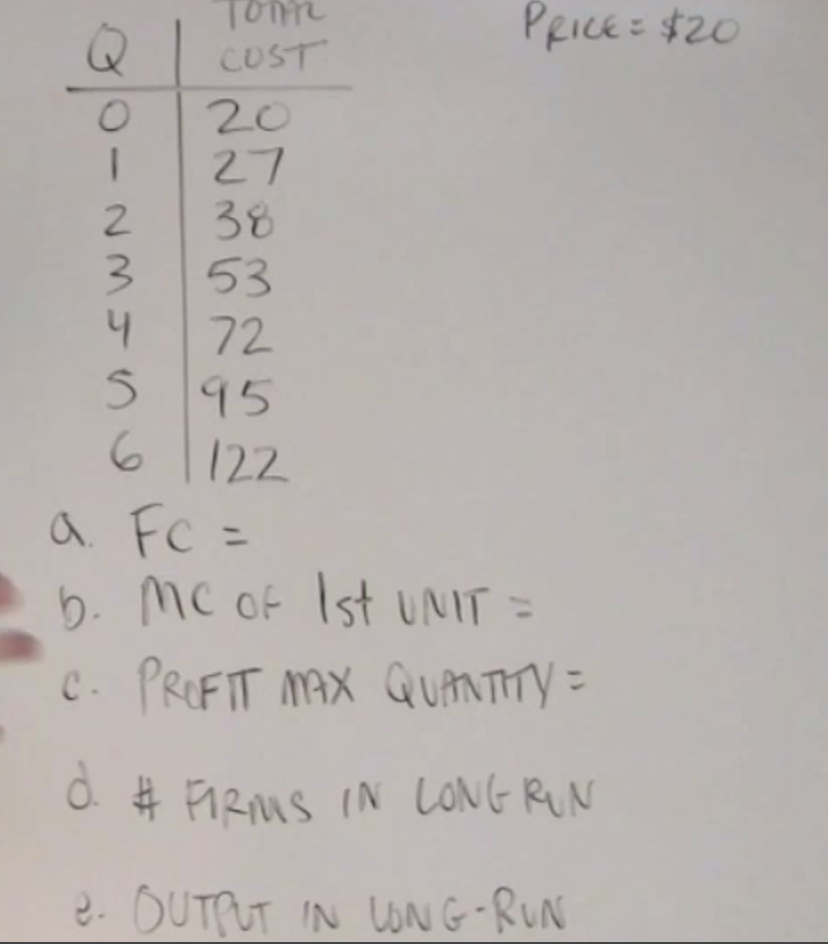 TOTAL PRICE = $20
Q COST
0 20
1 27
2 38
3 53
4 72
5 95
6 122
a. FC =
b. MC OF 1st UNIT =
c. PROFIT MAX QUANTITY =
d. # FIRMS IN LONG RUN
e. OUTPUT IN LONG-RUN